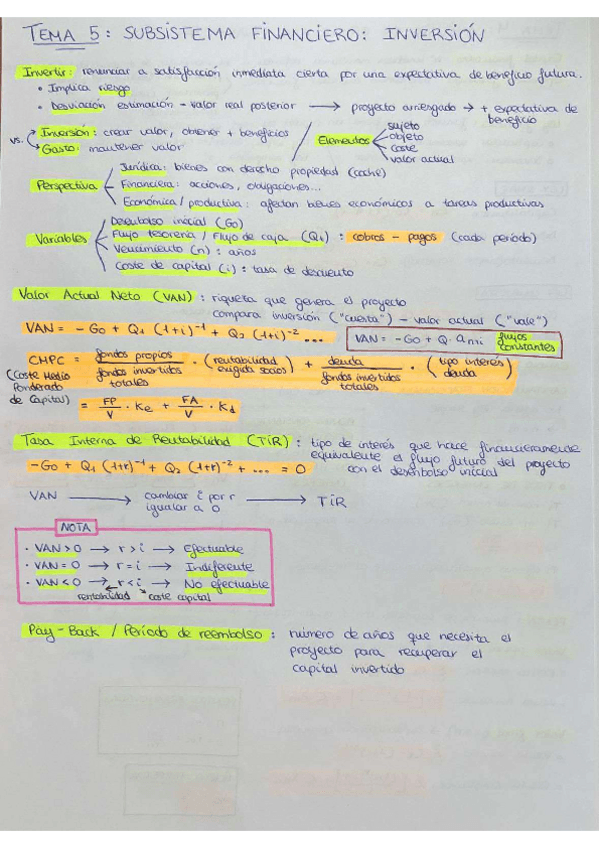 TEMA 5: SUBSISTEMA FINANCIERO: INVERSIÓN
Invertir: renunciar a satisfacción inmediata cierta por una expectativa de beneficio futura.
• Implica riesgo
• Desviación estimación - valor real posterior → proyecto arriesgado → + expectativa de beneficio
vs. Inversión: crear valor, obtener + beneficios
Gasto: mantener valor
Elementos
sujeto
objeto
coste
valor actual
Perspectiva
Jurídica: bienes con derecho propiedad (coche)
Financiera: acciones, obligaciones...
Económica / productiva: afectan bienes económicos a tareas productivas
Variables
Desembolso inicial (Go)
Flujo tesorería / Flujo de caja (Q1): cobros - pagos (cada período)
Vencimiento (n): años
Coste de capital (i): tasa de descuento
Valor Actual Neto (VAN): riqueza que genera el proyecto
compara inversión ("cuesta") - valor actual ("vale")
VAN = - Go + Q1 (1+i)⁻¹ + Q2 (1+i)⁻² ...
VAN = -Go + Q · a n¬i flujos constantes
CMPC = fondos propios / fondos invertidos totales · (rentabilidad exigida socios) + deuda / fondos invertidos totales · (tipo interés deuda)
(Coste Medio Ponderado de Capital)
= FP/V · Ke + FA/V · Kd
Tasa Interna de Rentabilidad (TIR): tipo de interés que hace financieramente
equivalente el flujo futuro del proyecto
con el desembolso inicial
-Go + Q1 (1+r)⁻¹ + Q2 (1+r)⁻² + ... = 0
VAN → cambiar i por r
igualar a 0 → TIR
NOTA
• VAN > 0 → r > i → Efectuable
• VAN = 0 → r = i → Indiferente
• VAN < 0 → r < i → No efectuable
rentabilidad coste capital
Pay-Back / Período de reembolso: número de años que necesita el
proyecto para recuperar el
capital invertido